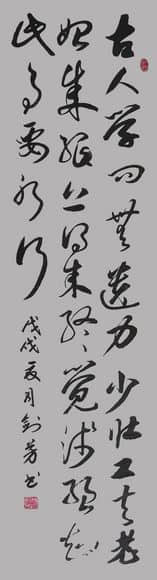 古人學问無遺力少壮工夫老
始成紙上得来終覺浅絶知
此事要躬行
戊戌夏月劍芳书